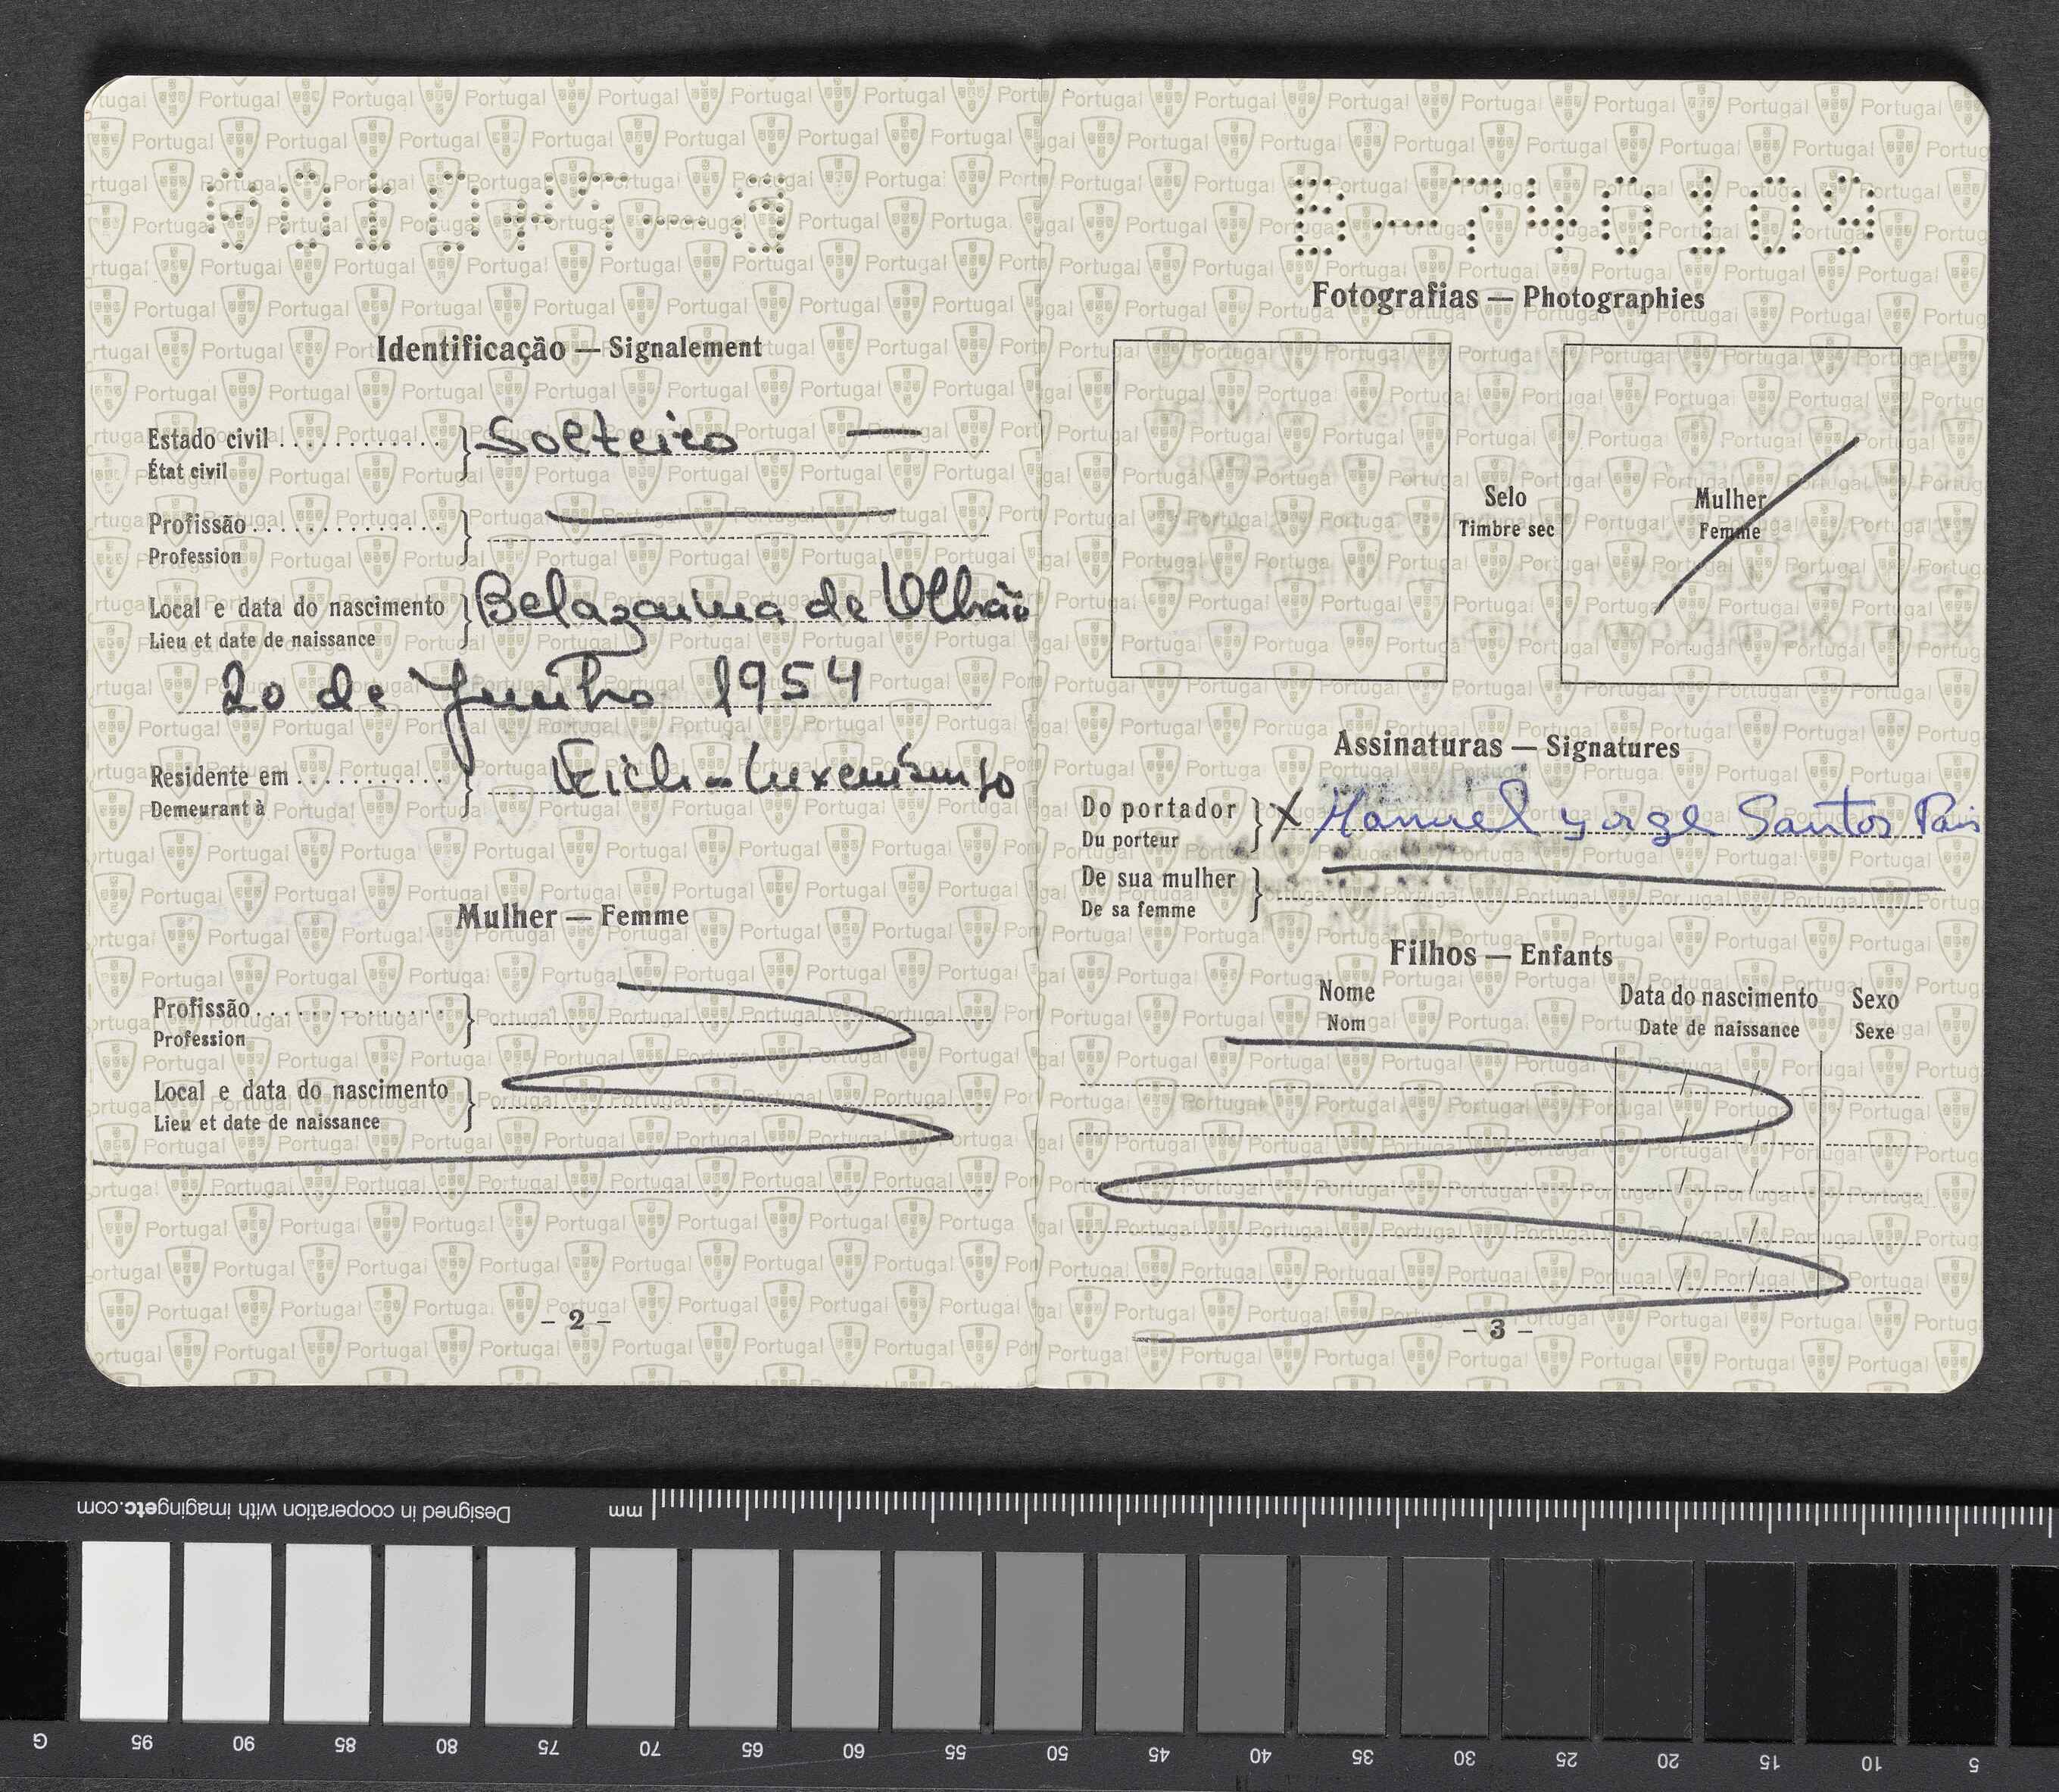 B-740109
Identificação — Signalement
Estado civil ............ } Solteiro —
État civil
Profissão .............. }
Profession
Local e data do nascimento }
Lieu et date de naissance
20 de Junho 1954
Residente em ........... } Eich - Luxemburgo
Demeurant à
Mulher — Femme
Profissão .............. }
Profession
Local e data do nascimento }
Lieu et date de naissance
- 2 -
B-740109
Fotografias — Photographies
Selo
Timbre sec
Mulher
Femme
Assinaturas — Signatures
Do portador } X Manuel Jorge Santos Pais
Du porteur
De sua mulher }
De sa femme
Filhos — Enfants
Nome Data do nascimento Sexo
Nom Date de naissance Sexe
/ /
/ /
/ /
/ /
/ /
- 3 -
Designed in cooperation with imagingetc.com mm
G 95 90 85 80 75 70 65 60 55 50 45 40 35 30 25 20 15 10 5